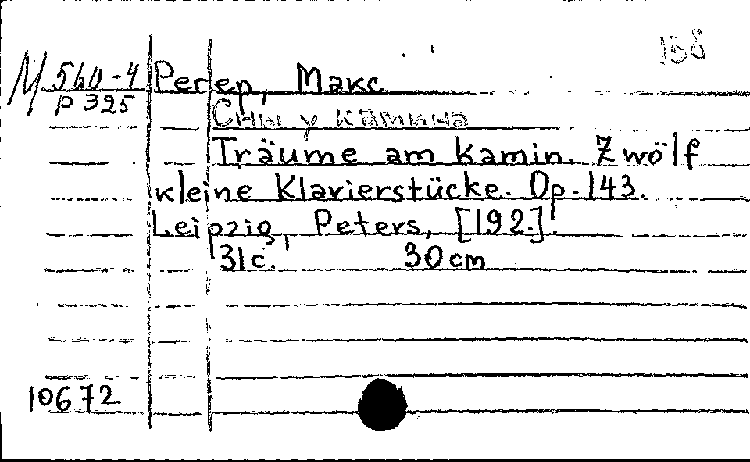 168
М 560-4
Р 325
Регер, Макс
Сны у камина
Träume am Kamin. Zwölf
kleine Klavierstücke. Op. 143.
Leipzig, Peters, [192.].
31 с. 30 cm
10672